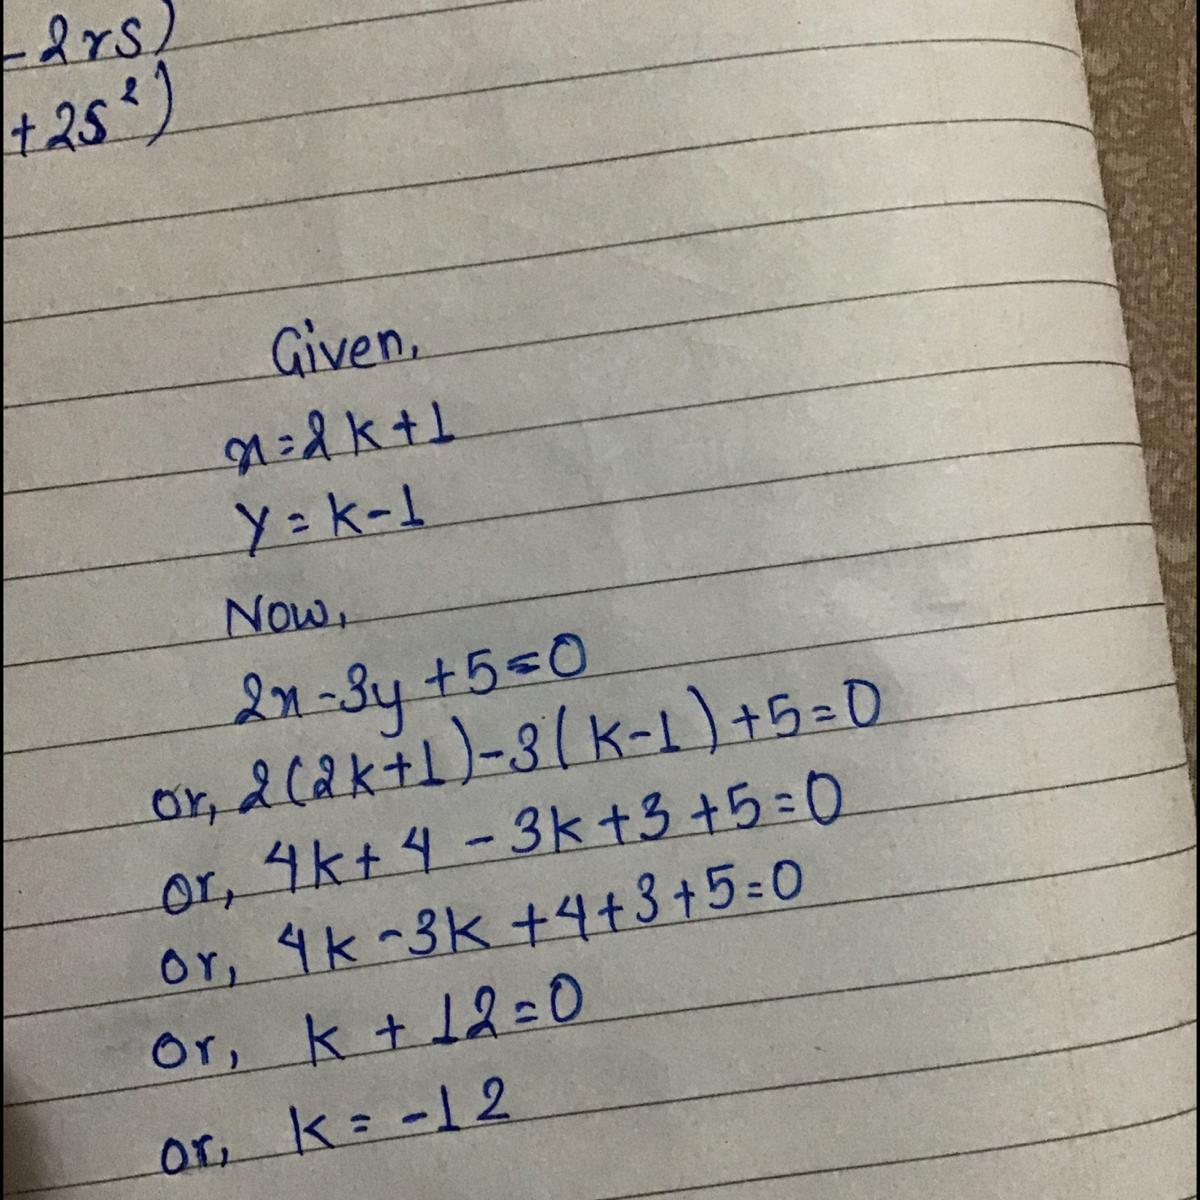 -2rs)
+2s²)
Given,
x=2k+1
y=k-1
Now,
2x-3y+5=0
or, 2(2k+1)-3(k-1)+5=0
or, 4k+4-3k+3+5=0
or, 4k-3k+4+3+5=0
or, k+12=0
or, k=-12